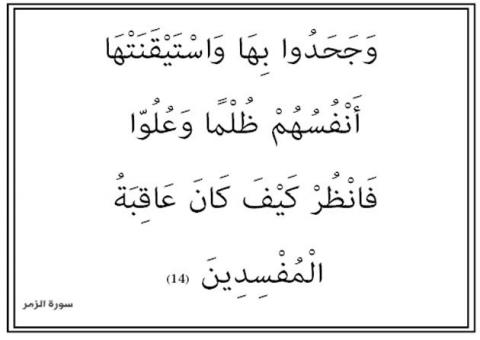 وَجَحَدُوا بِهَا وَاسْتَيْقَنَتْهَا
أَنْفُسُهُمْ ظُلْمًا وَعُلُوّا
فَانْظُرْ كَيْفَ كَانَ عَاقِبَةُ
الْمُفْسِدِينَ (14)
سورة الزمر